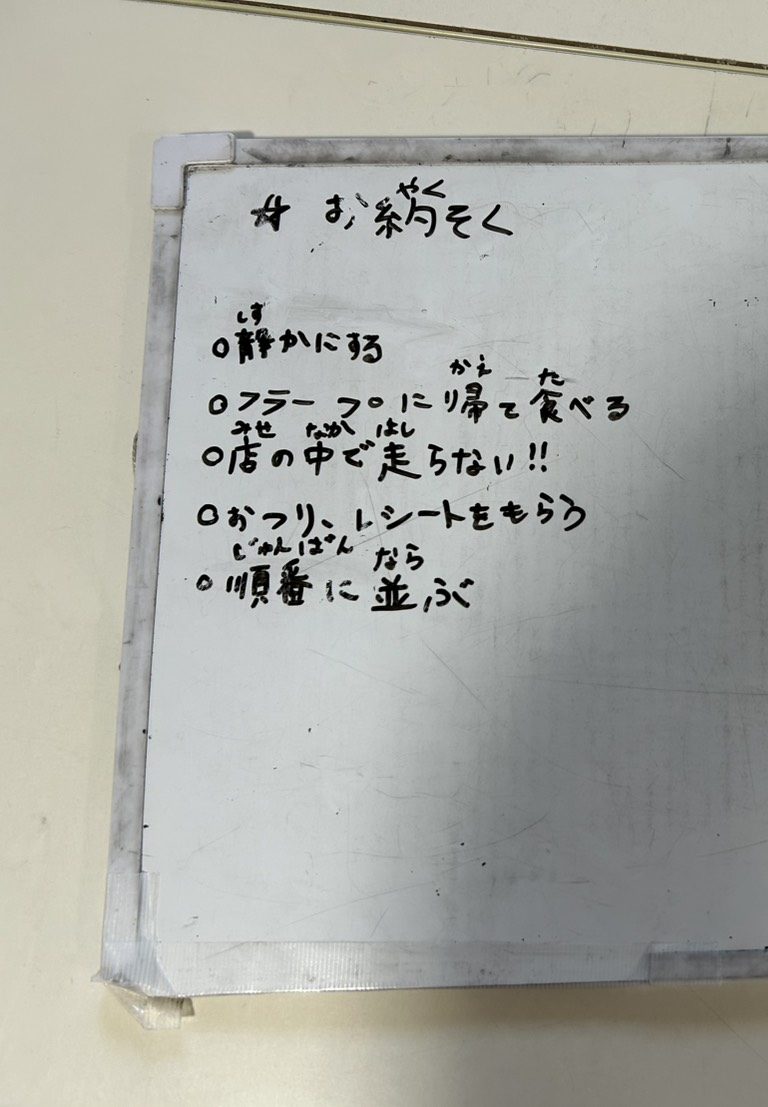 やく
☆ お約そく
しず
○静かにする
かえ た
○フラープに帰って食べる
みせ なか はし
○店の中で走らない!!
○おつり、レシートをもらう
じゅんばん なら
○順番に並ぶ